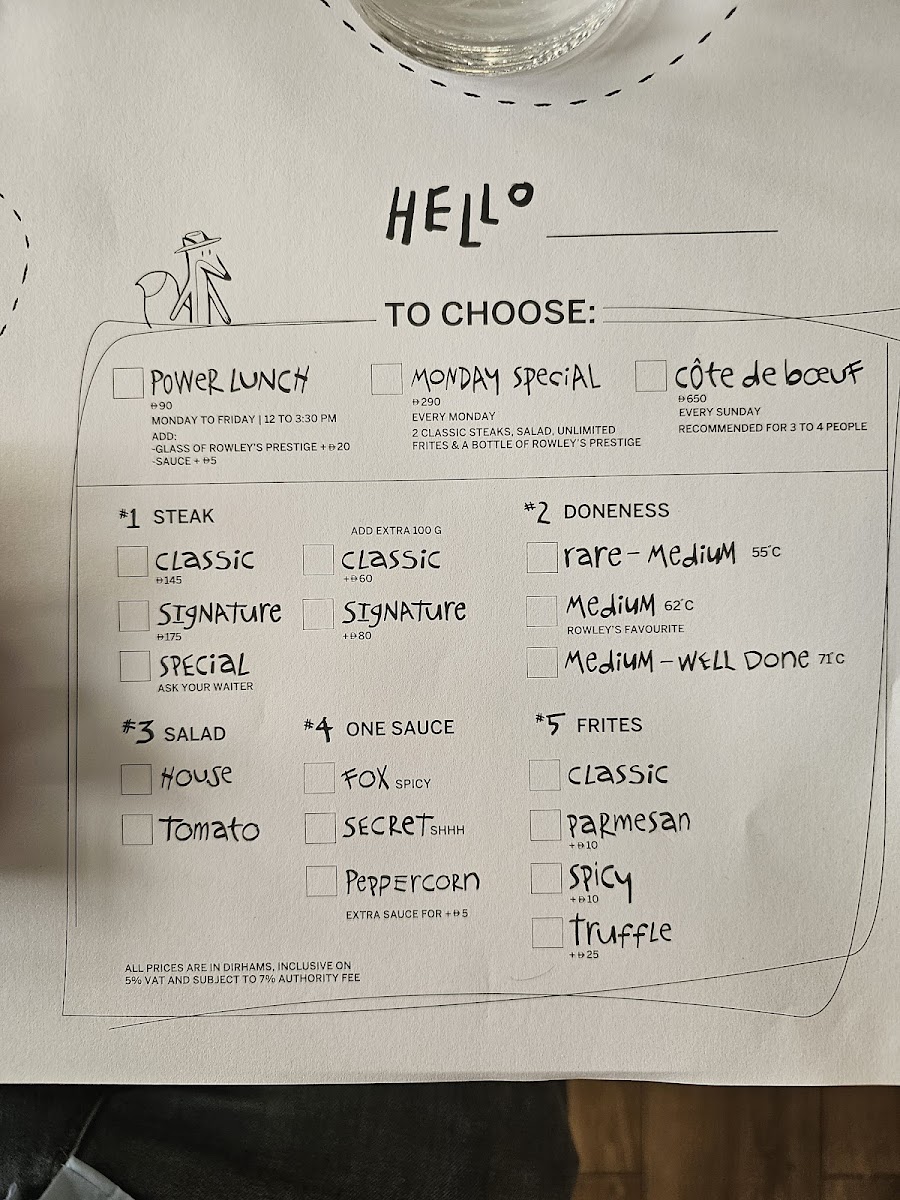 HELLO
TO CHOOSE:
POWER LUNCH
Đ90
MONDAY TO FRIDAY | 12 TO 3:30 PM
ADD:
-GLASS OF ROWLEY'S PRESTIGE + Đ20
-SAUCE + Đ5
MONDAY SPECIAL
Đ290
EVERY MONDAY
2 CLASSIC STEAKS, SALAD, UNLIMITED
FRITES & A BOTTLE OF ROWLEY'S PRESTIGE
CÔTE DE BŒUF
Đ650
EVERY SUNDAY
RECOMMENDED FOR 3 TO 4 PEOPLE
#1 STEAK
CLASSIC
Đ145
SIGNATURE
Đ175
SPECIAL
ASK YOUR WAITER
ADD EXTRA 100 G
CLASSIC
+Đ60
SIGNATURE
+Đ80
#2 DONENESS
RARE - MEDIUM 55°C
MEDIUM 62°C
ROWLEY'S FAVOURITE
MEDIUM - WELL DONE 71°C
#3 SALAD
HOUSE
TOMATO
#4 ONE SAUCE
FOX SPICY
SECRET SHHH
PEPPERCORN
EXTRA SAUCE FOR +Đ5
#5 FRITES
CLASSIC
PARMESAN
+Đ10
SPICY
+Đ10
TRUFFLE
+Đ25
ALL PRICES ARE IN DIRHAMS, INCLUSIVE ON
5% VAT AND SUBJECT TO 7% AUTHORITY FEE